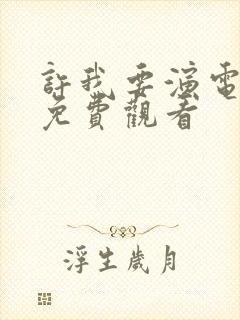 許我要演電
免費觀看
浮生歲月